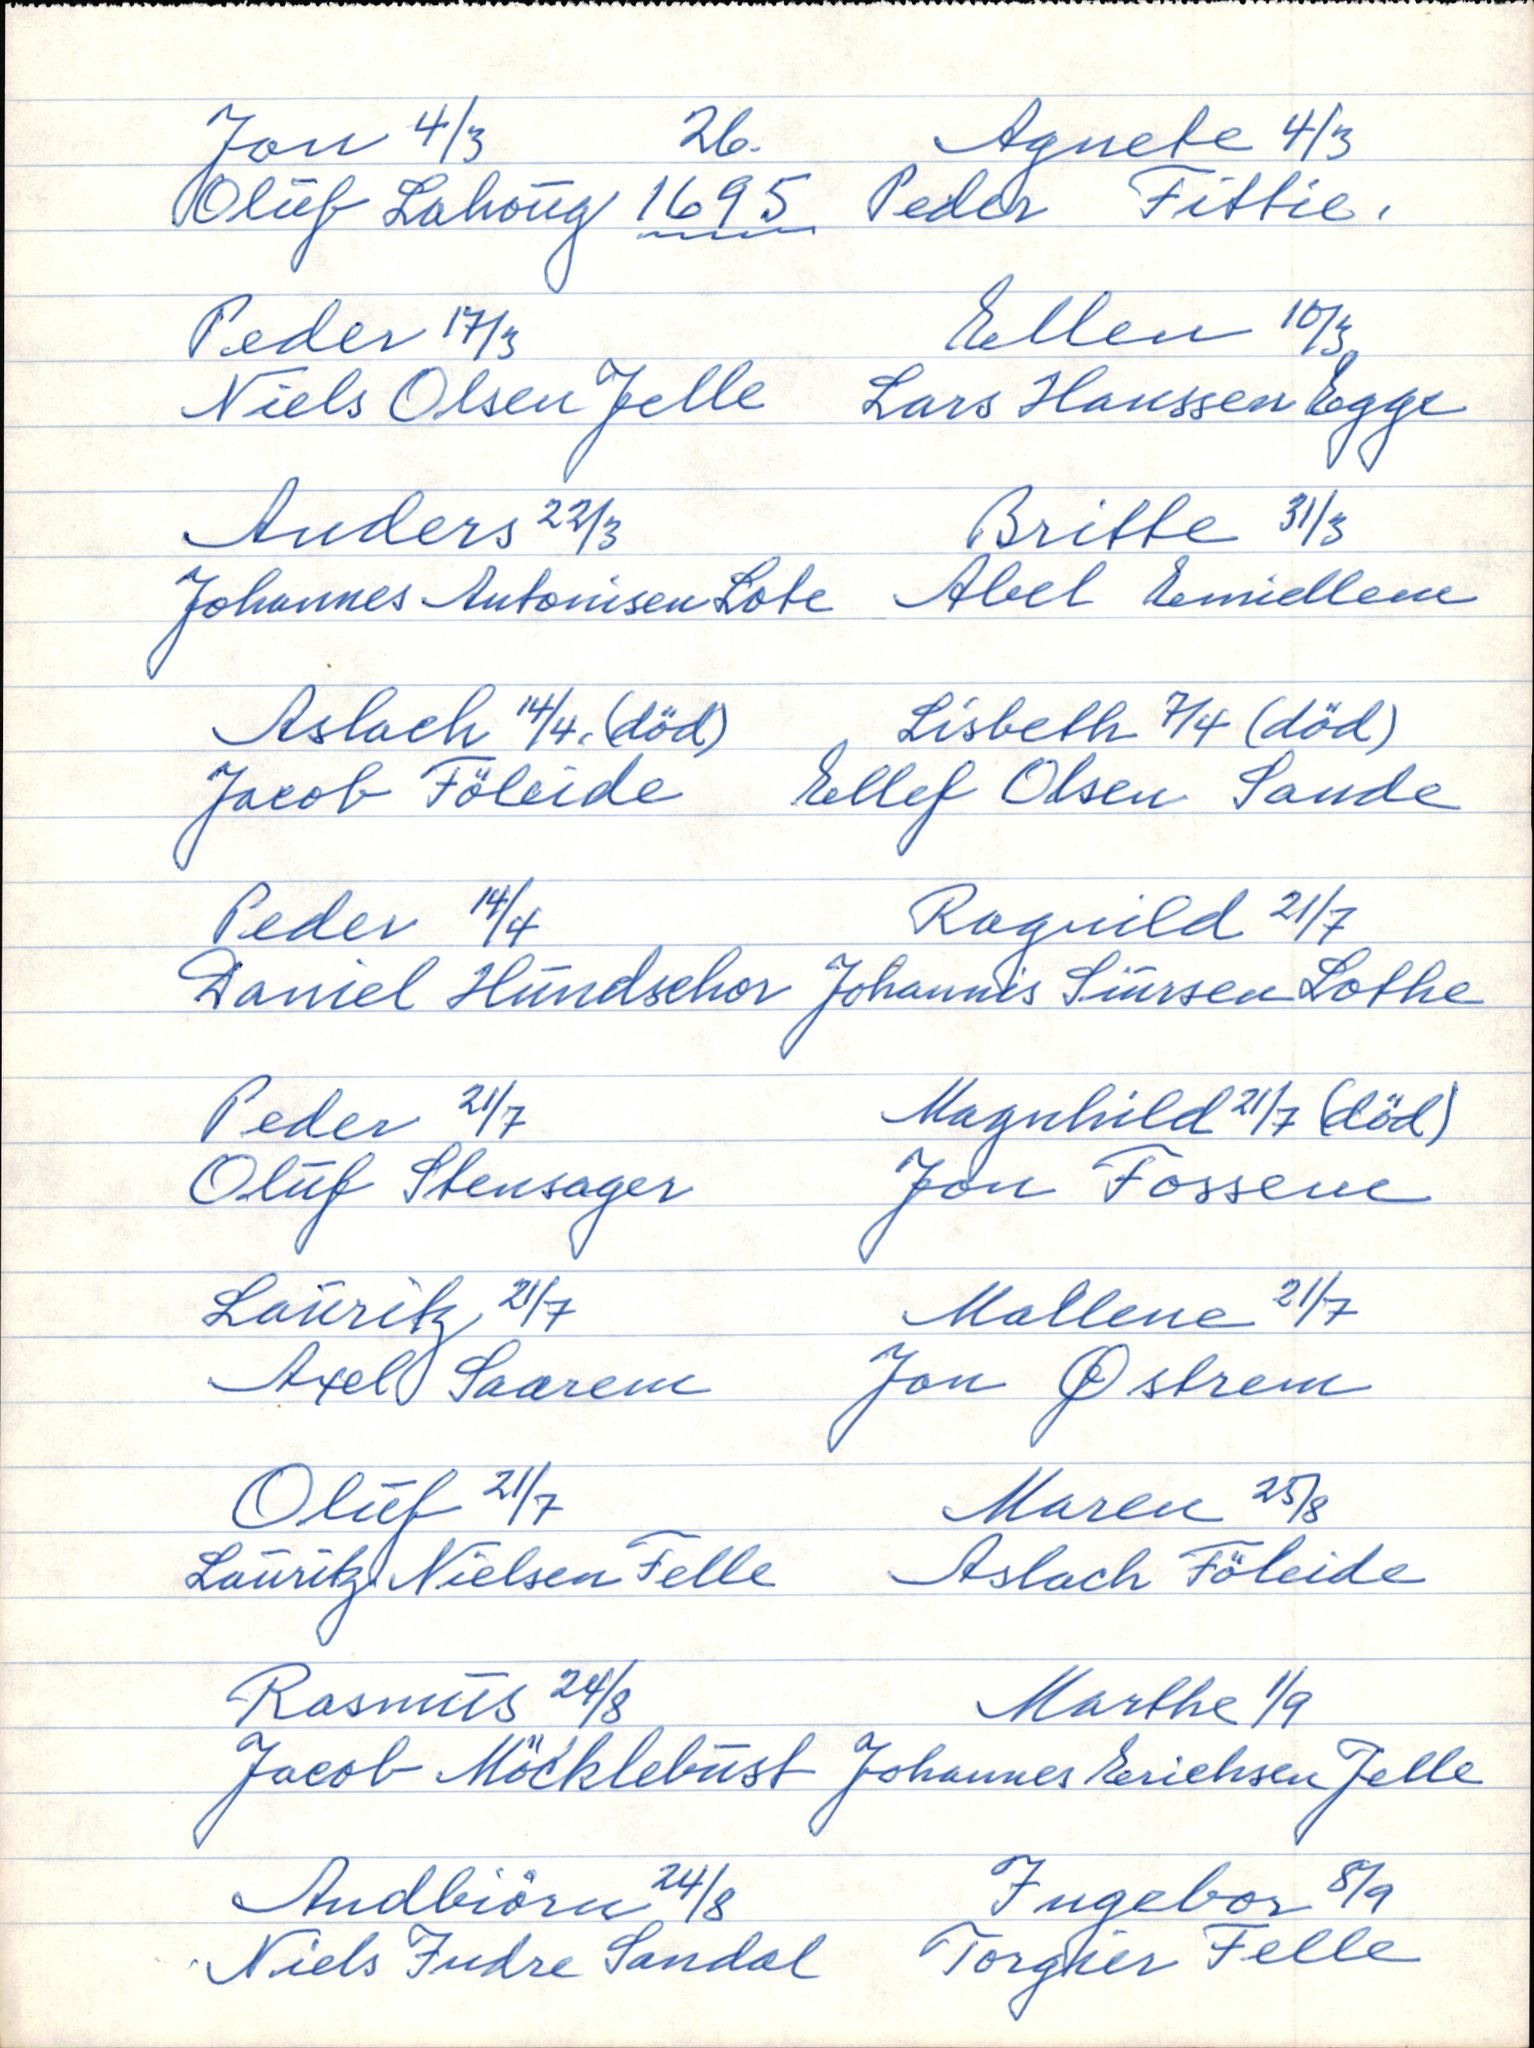 Jon 4/3 26. Agnete 4/3
Oluf Lahoug 1695 Peder Fittie.
Peder 17/3 Ellen 10/3
Niels Olsen Jelle Lars Hanssen Egge
Anders 22/3 Britte 31/3
Johannes Antonisen Lote Abel Emiellem
Aslach 14/4. (död) Lisbeth 7/4 (död)
Jacob Föleide Ellef Olsen Sande
Peder 14/4 Ragnild 21/7
Daniel Hundschor Johannis Siursen Lothe
Peder 21/7 Magnhild 21/7 (död)
Oluf Stensager Jon Fossem
Lauritz 21/7 Mallene 21/7
Axel Saarem Jon Østrem
Oluf 21/7 Maren 25/8
Lauritz Nielsen Felle Aslach Föleide
Rasmus 24/8 Marthe 1/9
Jacob Möcklebust Johannes Erichsen Jelle
Andbiörn 24/8 Ingebor 8/9
Niels Indre Sandal Torgier Felle